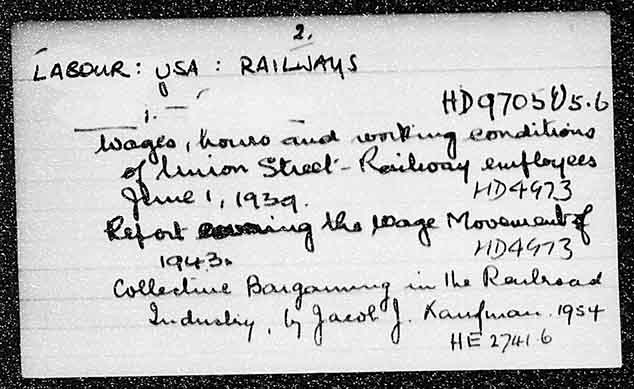 2.
LABOUR: USA: RAILWAYS
1. —
HD9705U5.6
Wages, hours and working conditions
of Union Street-Railway employees
June 1, 1939.
HD4973
Report covering the Wage Movement of
1943.
HD4973
Collective Bargaining in the Railroad
Industry, by Jacob J. Kaufman. 1954
HE 2741.6